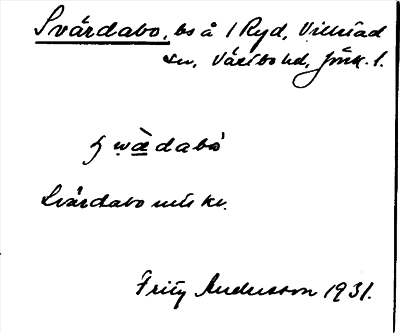 Svärdabo, bs å 1 Ryd, Villstad
sn, Västbo hd, Jönk. l.
Svärdabo
Fritz Andersson 1931.